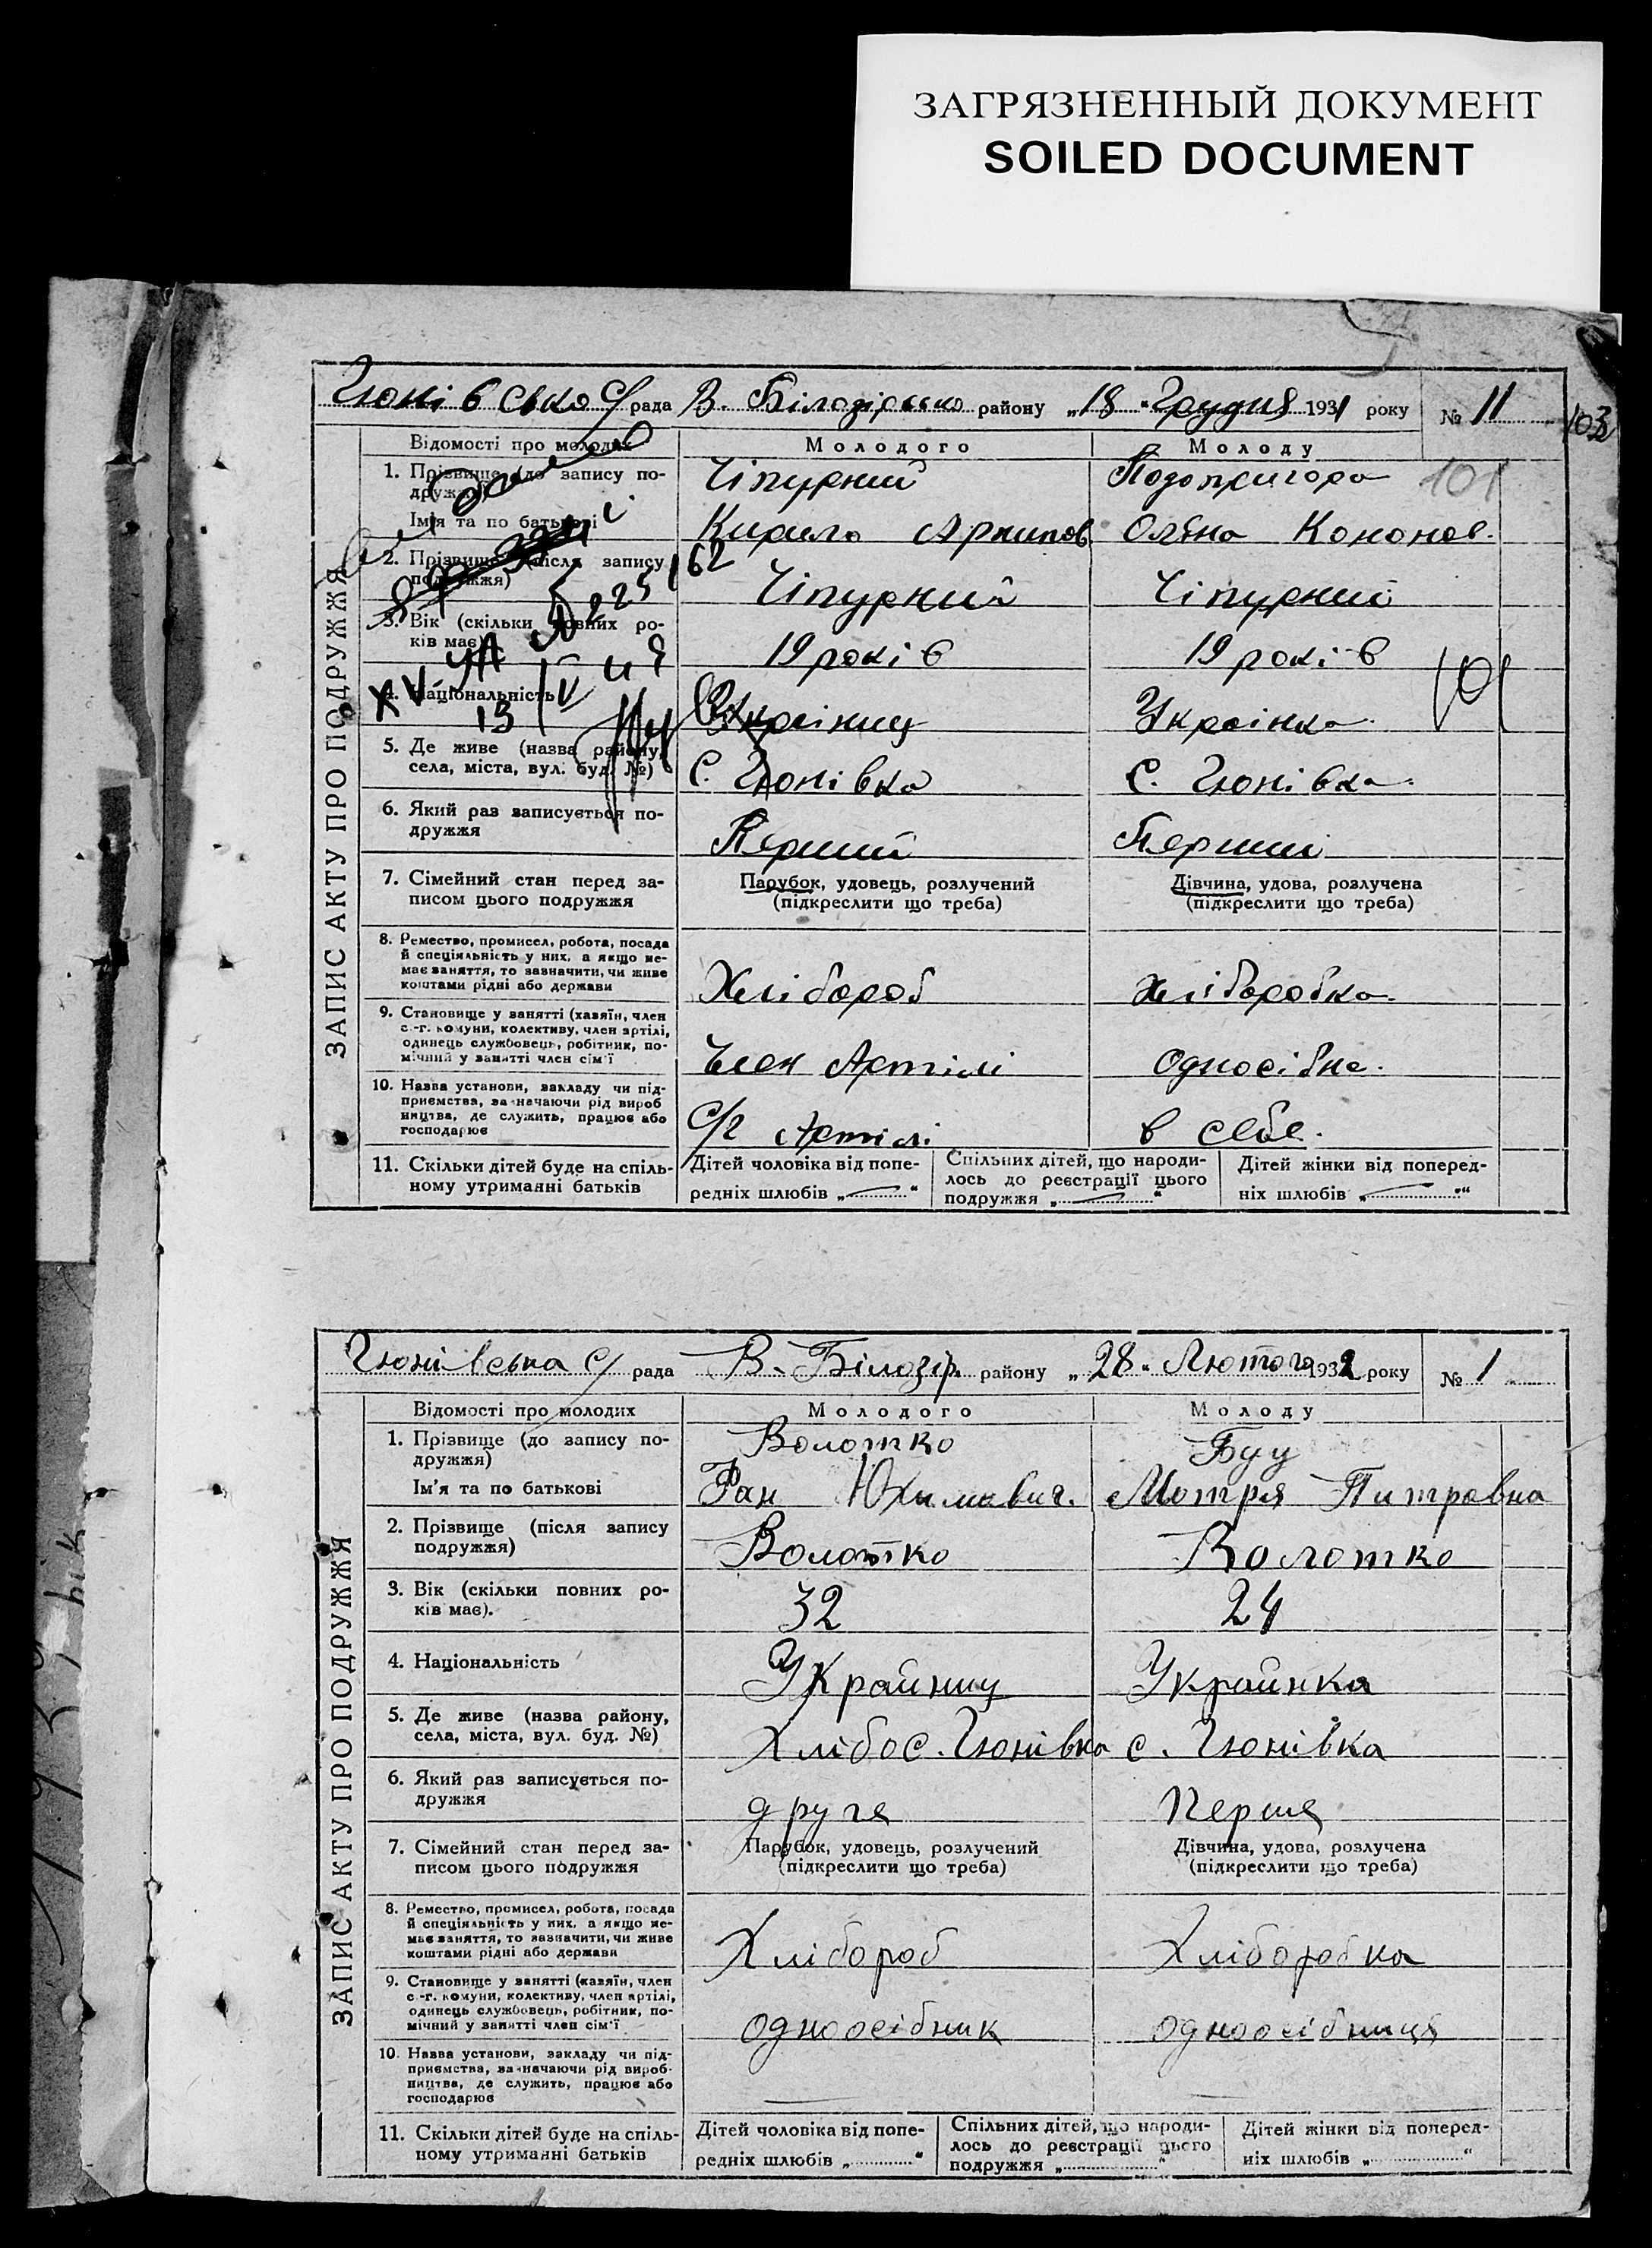 ЗАГРЯЗНЕННЫЙ ДОКУМЕНТ
SOILED DOCUMENT
Гюнівсько с/ рада В. Білозірсько району „18“ Грудня 1931 року № 11
103
ЗАПИС АКТУ ПРО ПОДРУЖЖЯ
Відомості про молодих Молодого Молоду
1. Прізвище (до запису по-
дружжя) Чіпурний Подопригора 101
Ім'я та по батькові Кирило Архипов Оляна Кононов.
2. Прізвище (після запису
подружжя) Чіпурний Чіпурний
3. Вік (скільки повних ро-
ків має) 19 років 19 років
225162
XV УА №
13/IV
4. Національність Україниц Українка. 101
5. Де живе (назва району,
села, міста, вул. буд. №) с. Гюнівка с. Гюнівка.
6. Який раз записується по-
дружжя Перший Перший
7. Сімейний стан перед за-
писом цього подружжя
Парубок, удовець, розлучений
(підкреслити що треба)
Дівчина, удова, розлучена
(підкреслити що треба)
8. Ремество, промисел, робота, посада
й спеціяльність у них, а якщо не-
має заняття, то зазначити, чи живе
коштами рідні або держави Хлібороб Хліборобка.
9. Становище у занятті (хазяїн, член
с.-г. комуни, колективу, член артілі,
одинець службовець, робітник, по-
мічний у занятті член сім'ї Член Артілі Одноосібне.
10. Назва установи, закладу чи під-
приємства, зазначаючи рід вироб
ництва, де служить, працює або
господарює С/г Артілі в себе.
11. Скільки дітей буде на спіль-
ному утриманні батьків
Дітей чоловіка від попе-
редніх шлюбів „ — “
Спільних дітей, що народи-
лось до реєстрації цього
подружжя „ — “
Дітей жінки від поперед-
ніх шлюбів „ — “
Гюнівська с/ рада В. Білозір. району „28“ Лютого 1932 року № 1
ЗАПИС АКТУ ПРО ПОДРУЖЖЯ
Відомості про молодих Молодого Молоду
1. Прізвище (до запису по-
дружжя) Волотко Буу
Ім'я та по батькові Юхимович. Мотря Питровна
2. Прізвище (після запису
подружжя) Волотко Волотко
3. Вік (скільки повних ро-
ків має). 32 24
4. Національність Украйниц Украйнка
5. Де живе (назва району,
села, міста, вул. буд. №) Хлібо с. Гюнівка с. Гюнівка
6. Який раз записується по-
дружжя друге Перше
7. Сімейний стан перед за-
писом цього подружжя
Парубок, удовець, розлучений
(підкреслити що треба)
Дівчина, удова, розлучена
(підкреслити що треба)
8. Ремество, промисел, робота, посада
й спеціяльність у них, а якщо не-
має заняття, то зазначити, чи живе
коштами рідні або держави Хлібороб Хліборобка
9. Становище у занятті (хазяїн, член
с.-г. комуни, колективу, член артілі,
одинець службовець, робітник, по-
мічний у занятті член сім'ї одноосібник одноосібниця
10. Назва установи, закладу чи під-
приємства, зазначаючи рід вироб-
ництва, де служить, працює або
господарює
11. Скільки дітей буде на спіль-
ному утриманні батьків
Дітей чоловіка від попе-
редніх шлюбів „ “
Спільних дітей, що народи-
лось до реєстрації цього
подружжя „ “
Дітей жінки від поперед-
ніх шлюбів „ “